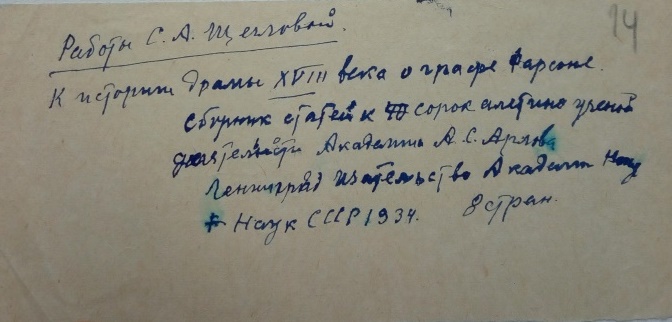 14
Работы С. А. Щегловой.
К истории драмы XVIII века о графе Фарсоне.
Сборник статей к сорок алетию ученой
деятельности Академика А. С. Арлова
Ленинград Издательство Академии Наук
Наук СССР 1934. 8 стран.